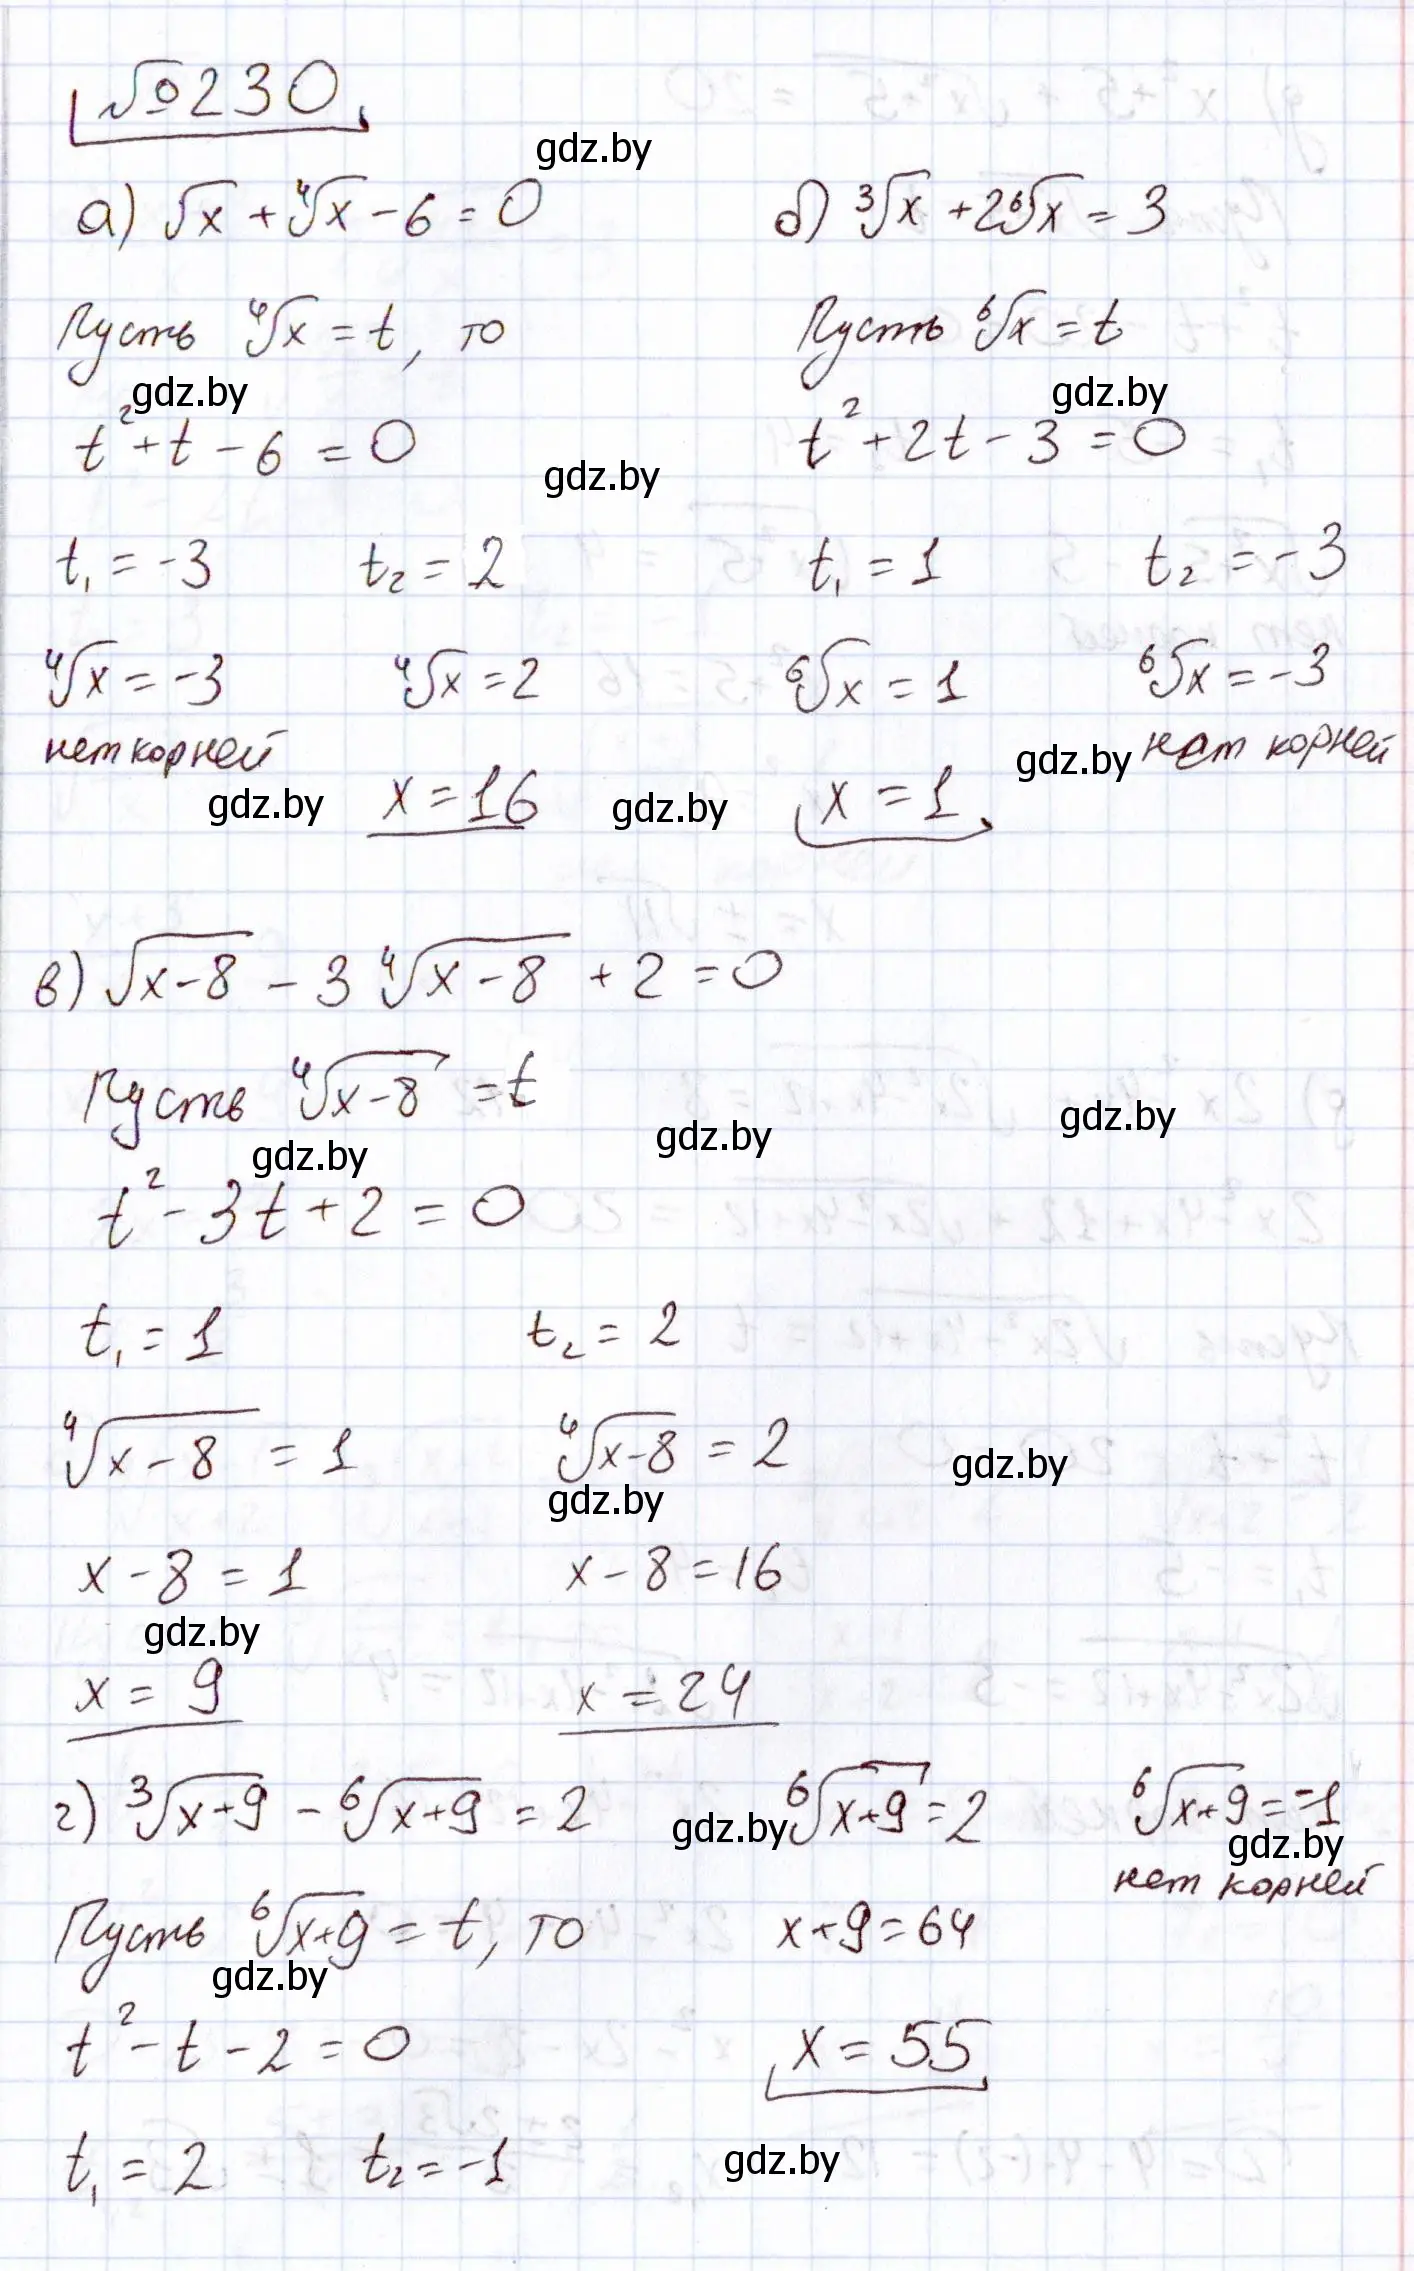 №230
gdz.by
а) √x + ⁴√x - 6 = 0
Пусть ⁴√x = t, то
gdz.by
t² + t - 6 = 0
gdz.by
t₁ = -3 t₂ = 2
⁴√x = -3 ⁴√x = 2
нет корней
gdz.by
x = 16
gdz.by
б) ³√x + 2⁶√x = 3
Пусть ⁶√x = t
gdz.by
t² + 2t - 3 = 0
t₁ = 1 t₂ = -3
⁶√x = 1 ⁶√x = -3
нет корней
gdz.by
x = 1
в) √(x-8) - 3 ⁴√(x-8) + 2 = 0
Пусть ⁴√(x-8) = t
gdz.by
gdz.by
gdz.by
t² - 3t + 2 = 0
t₁ = 1 t₂ = 2
⁴√(x-8) = 1 ⁴√(x-8) = 2
gdz.by
gdz.by
x - 8 = 1 x - 8 = 16
gdz.by
x = 9 x = 24
г) ³√(x+9) - ⁶√(x+9) = 2
gdz.by
Пусть ⁶√(x+9) = t, то
gdz.by
t² - t - 2 = 0
t₁ = 2 t₂ = -1
⁶√(x+9) = 2 ⁶√(x+9) = -1
gdz.by
нет корней
x + 9 = 64
x = 55
gdz.by